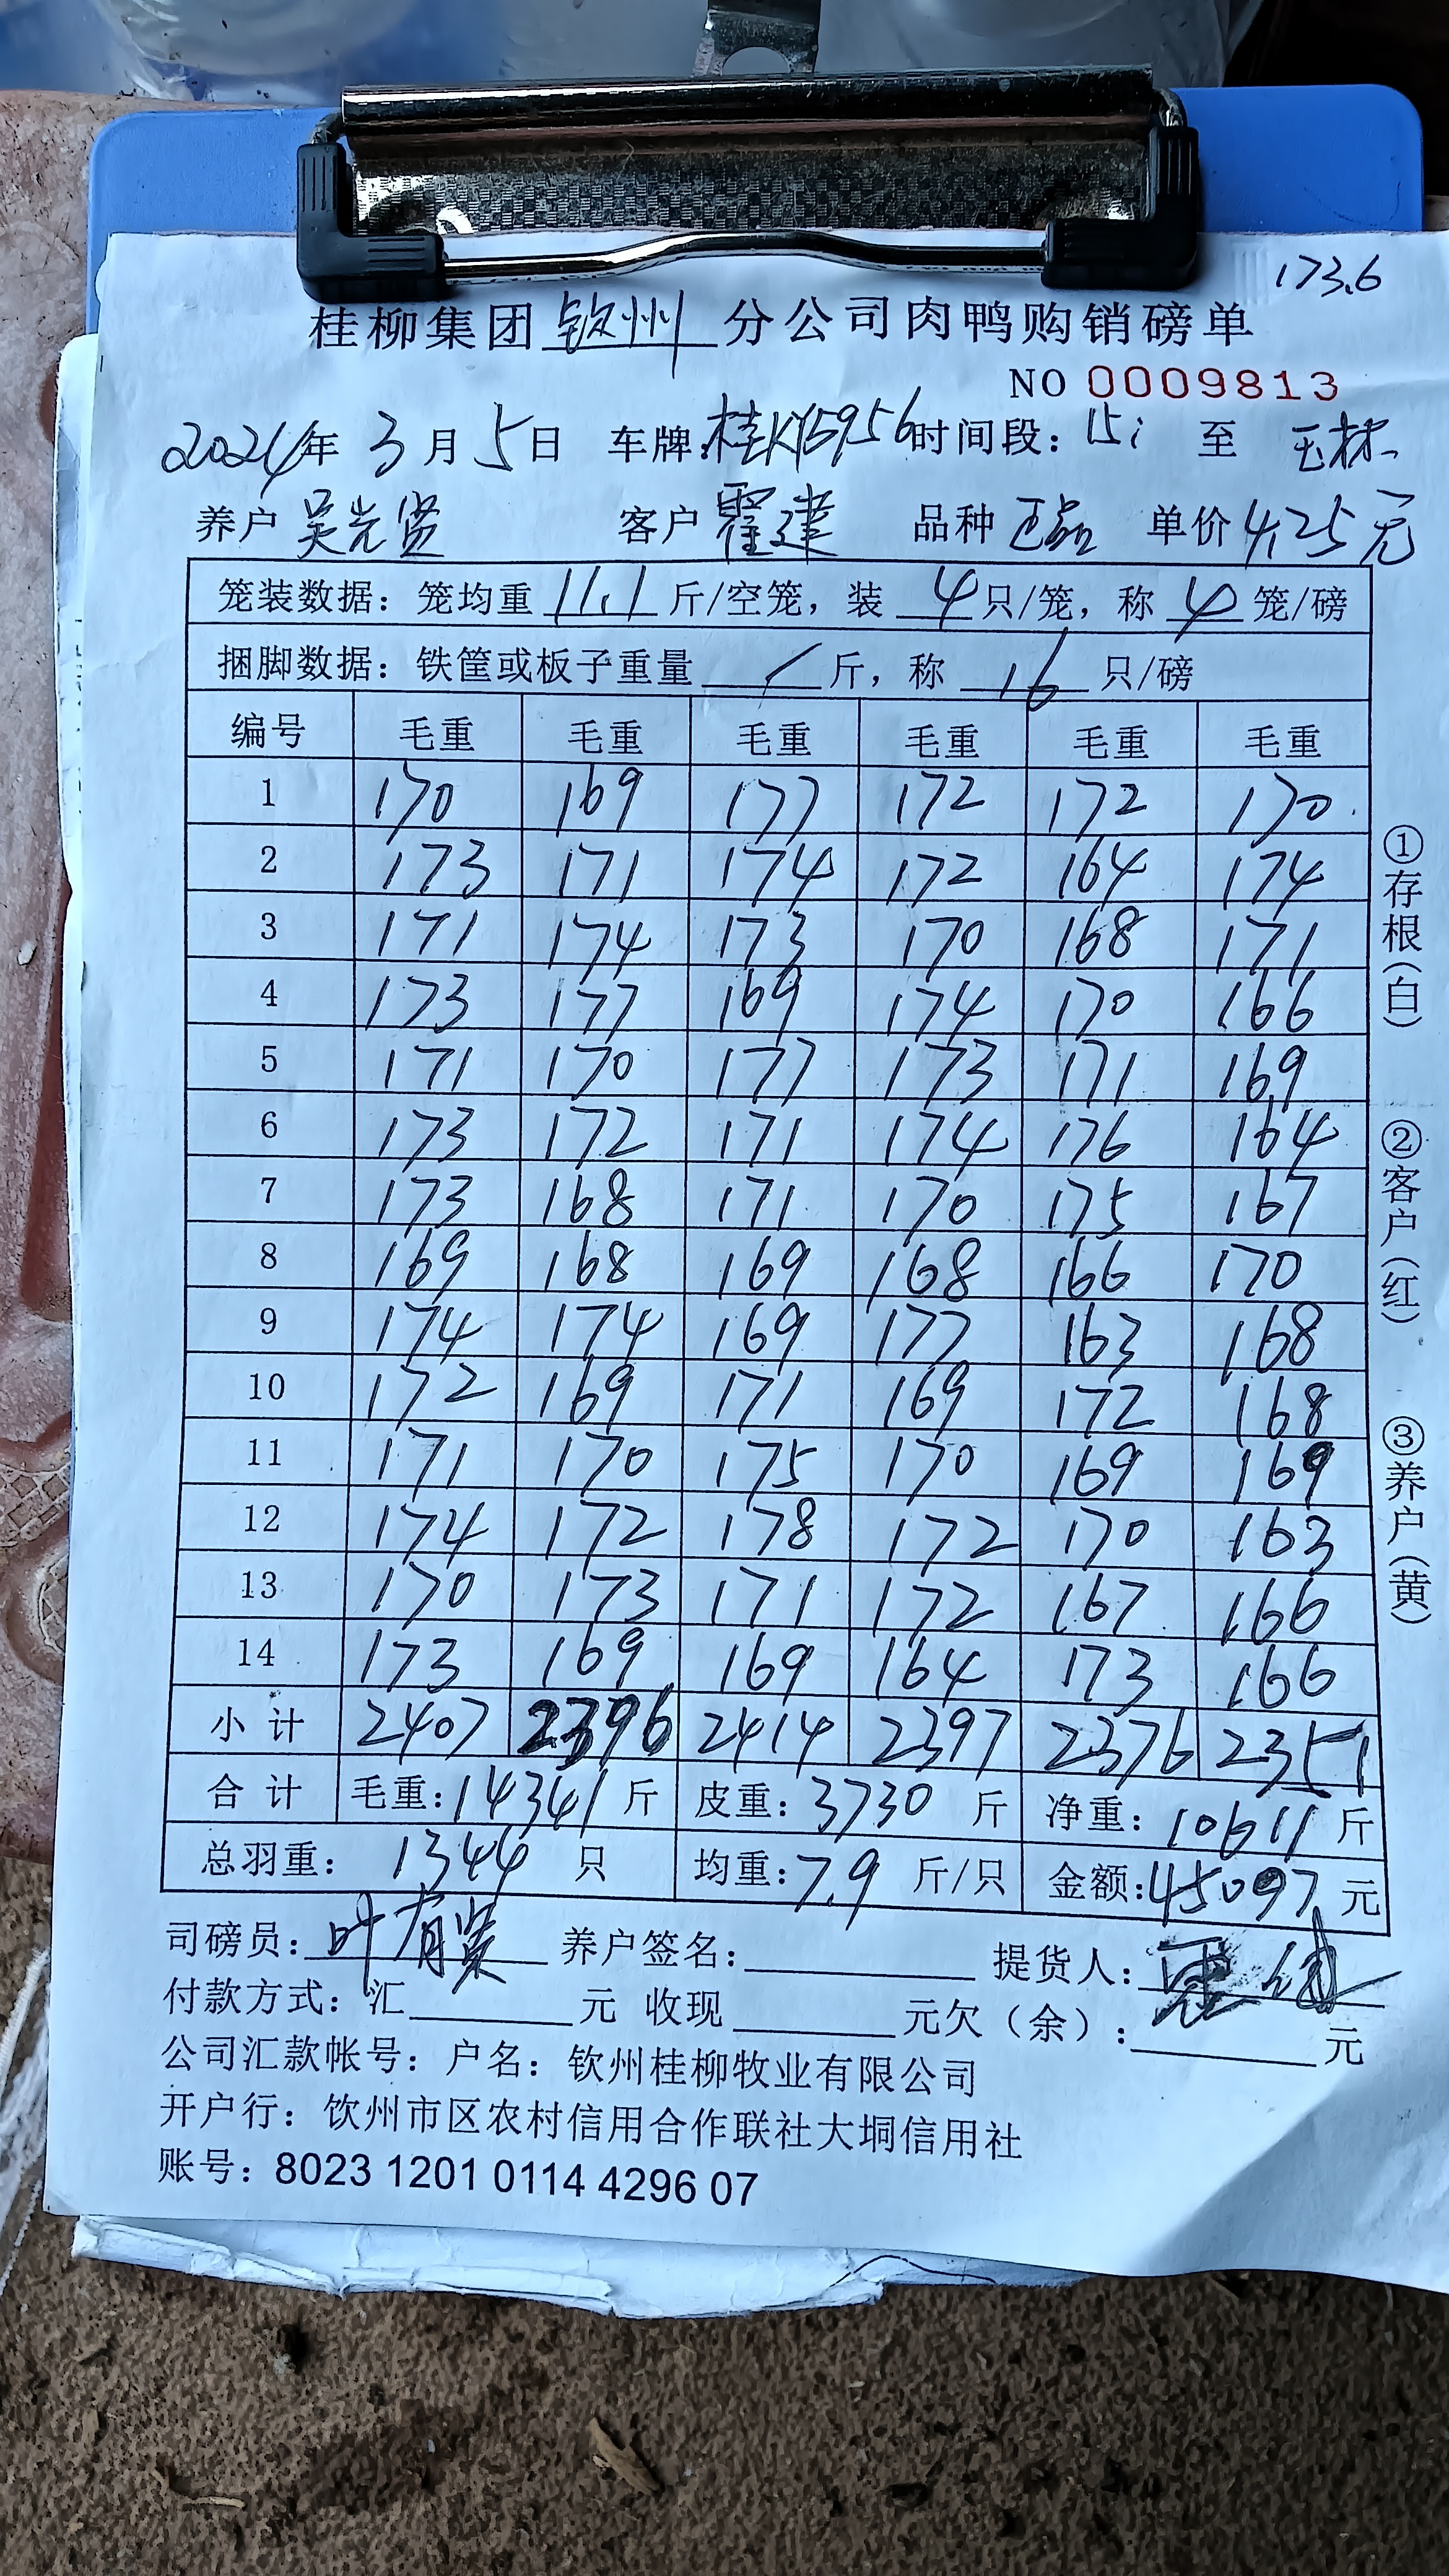 173.6
桂柳集团钦州分公司肉鸭购销磅单
NO 0009813
2024年 3月 5日 车牌:桂KY5956 时间段: 15: 至 玉林
养户 吴光贤 客户 霍建 品种 单价 4.25元
笼装数据: 笼均重 11.1 斤/空笼, 装 4 只/笼, 称 4 笼/磅
捆脚数据: 铁筐或板子重量 / 斤, 称 16 只/磅
编号 毛重 毛重 毛重 毛重 毛重 毛重
1 170 169 177 172 172 170
2 173 171 174 172 164 174
3 171 174 173 170 168 171
4 173 177 169 174 170 166
5 171 170 177 173 171 169
6 173 172 171 174 176 164
7 173 168 171 170 175 167
8 169 168 169 168 166 170
9 174 174 169 177 163 168
10 172 169 171 169 172 168
11 171 170 175 170 169 169
12 174 172 178 172 170 163
13 170 173 171 172 167 166
14 173 169 169 164 173 166
小计 2407 2396 2414 2397 2376 2351
合计 毛重: 14341 斤 皮重: 3730 斤 净重: 10611 斤
总羽重: 1344 只 均重: 7.9 斤/只 金额: 45097 元
司磅员: 叶有贤 养户签名: 提货人: 霍建
付款方式: 汇 元 收现 元欠(余): 元
公司汇款帐号: 户名: 钦州桂柳牧业有限公司
开户行: 饮州市区农村信用合作联社大垌信用社
账号: 8023 1201 0114 4296 07
①存根(白)
②客户(红)
③养户(黄)